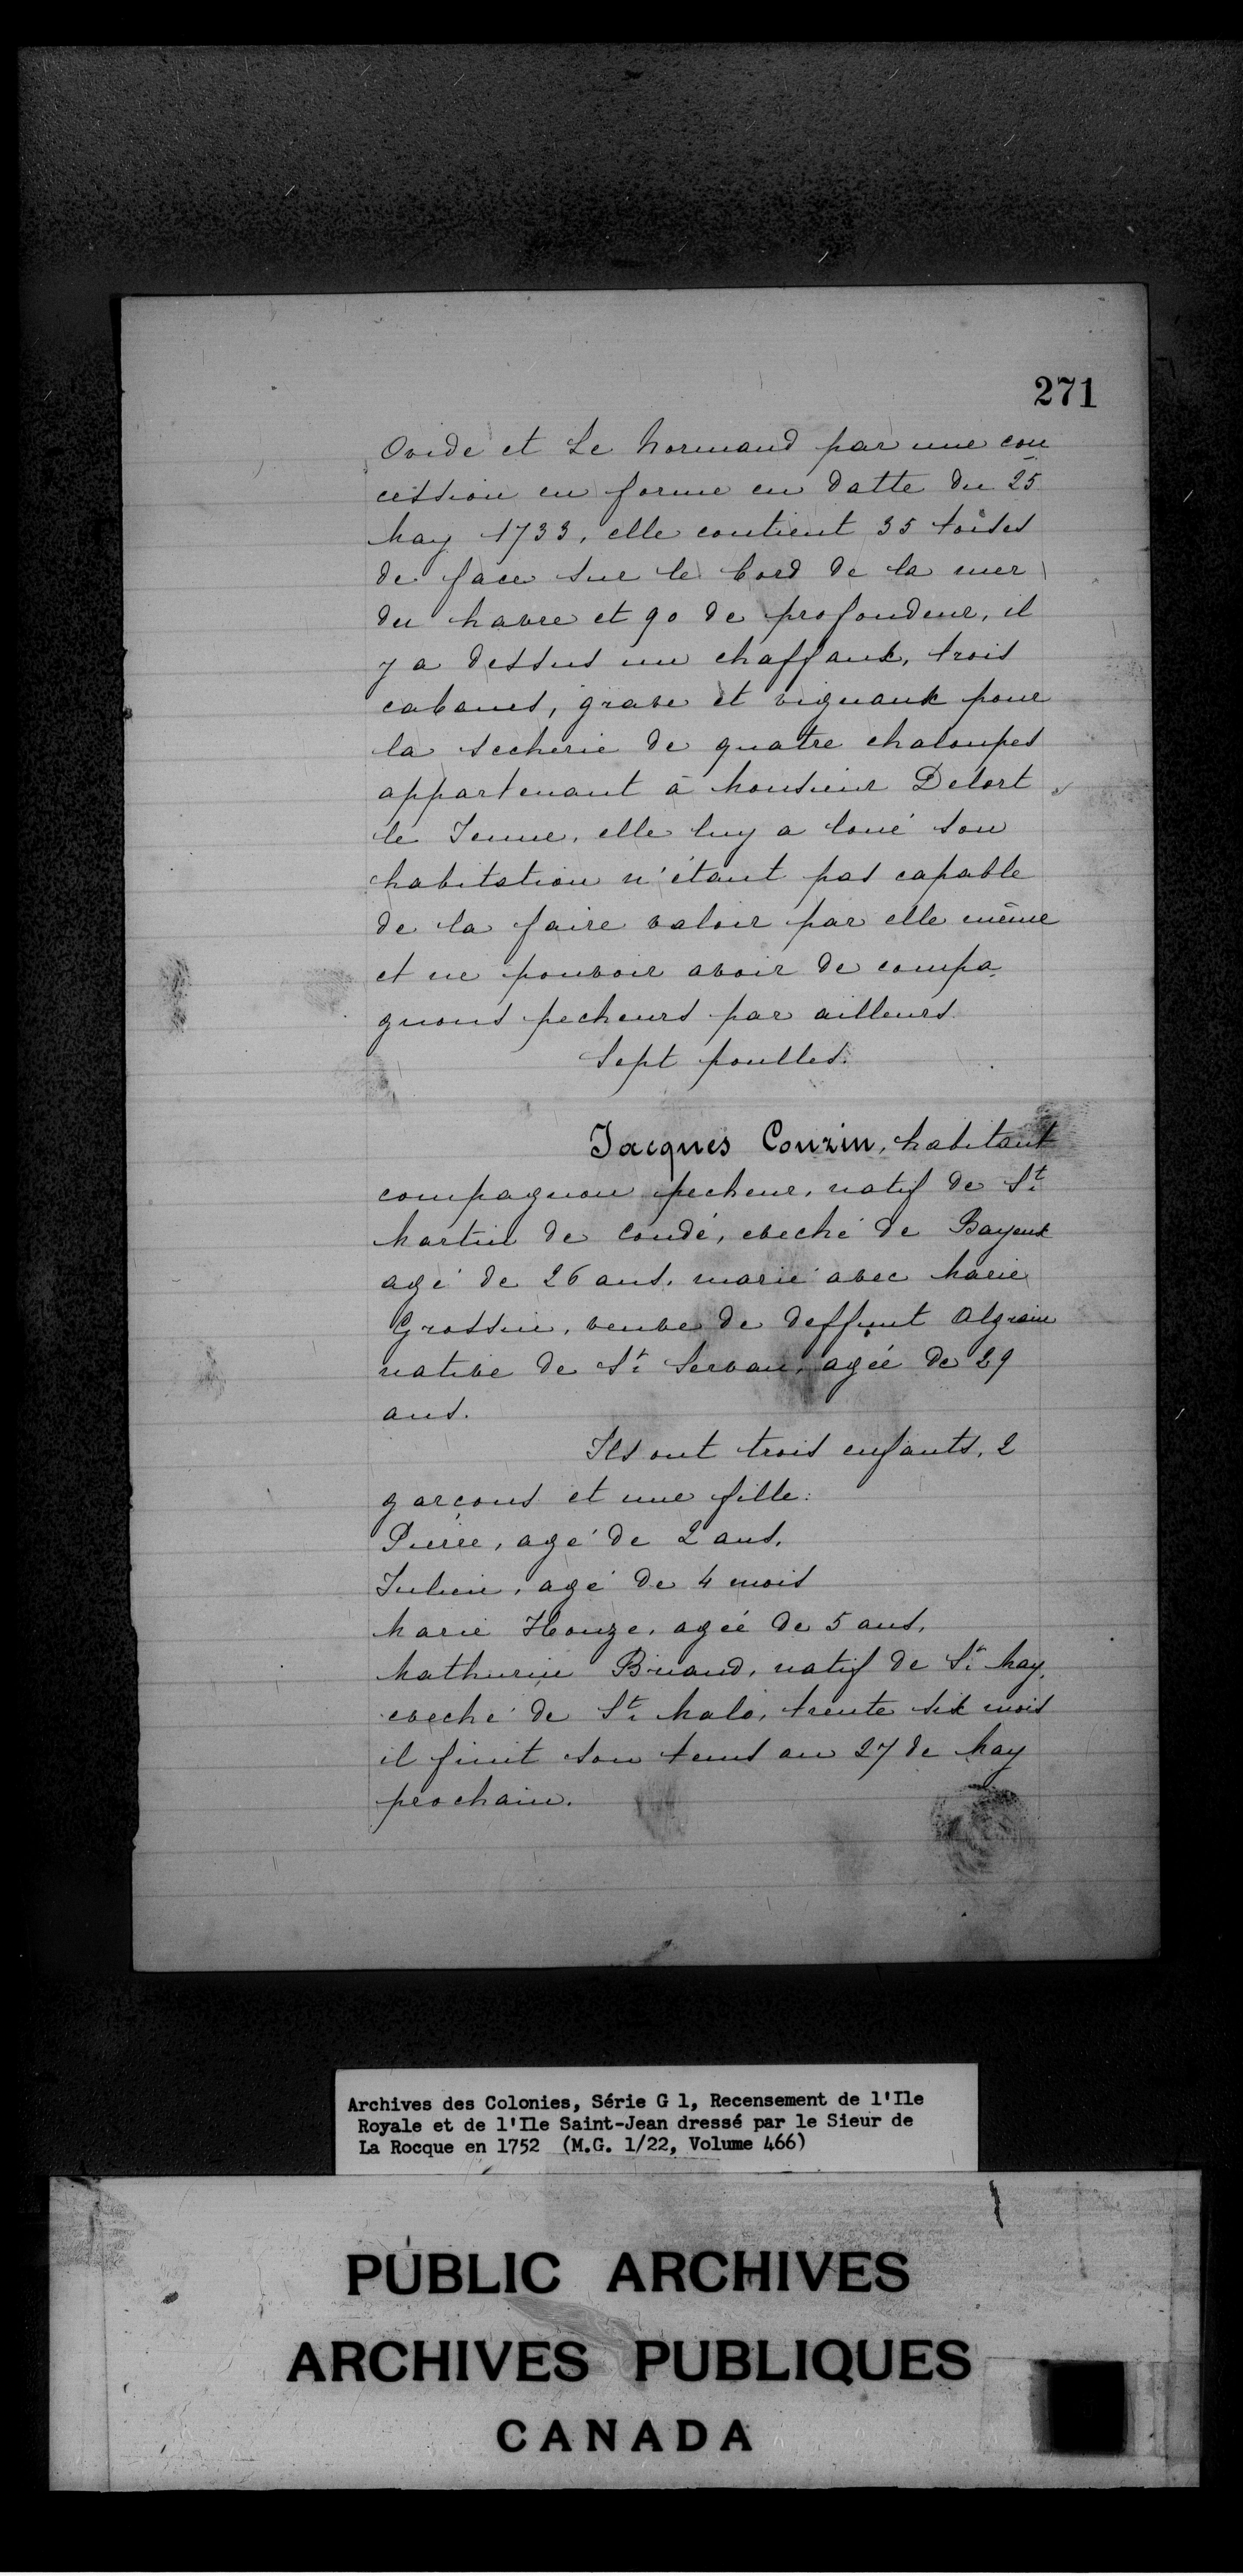 271
Ovide et Le Normand par une con
cession en forme en datte du 25
May 1733, elle contient 35 toises
de face sur le bord de la mer
du havre et 90 de profondeur, il
y a dessus un chaffaux, trois
cabanes, grave et vignaux pour
la secherie de quatre chaloupes
appartenant à Monsieur Delort
le Jeune, elle luy a loué son
habitation n'étant pas capable
de la faire valoir par elle même
et ne pouvoir avoir de compa
gnons pecheurs par ailleurs
Sept poulles.
Jacques Couzin, habitant
compagnon pecheur, natif de St
Martin de Condé, eveché de Bayeux
agé de 26 ans, marié avec Marie
Grossin, veuve de deffunt Algrain
native de St Servan, agée de 29
ans.
Ils ont trois enfants, 2
garçons et une fille:
Pierre, agé de 2 ans,
Julien, agé de 4 mois
Marie Houze, agée de 5 ans,
Mathurin Bruand, natif de St May,
eveché de St Malo, trente six mois
il finit son tems au 27 de May
prochain.
Archives des Colonies, Série G 1, Recensement de l'Ile
Royale et de l'Ile Saint-Jean dressé par le Sieur de
La Rocque en 1752 (M.G. 1/22, Volume 466)
PUBLIC ARCHIVES
ARCHIVES PUBLIQUES
CANADA